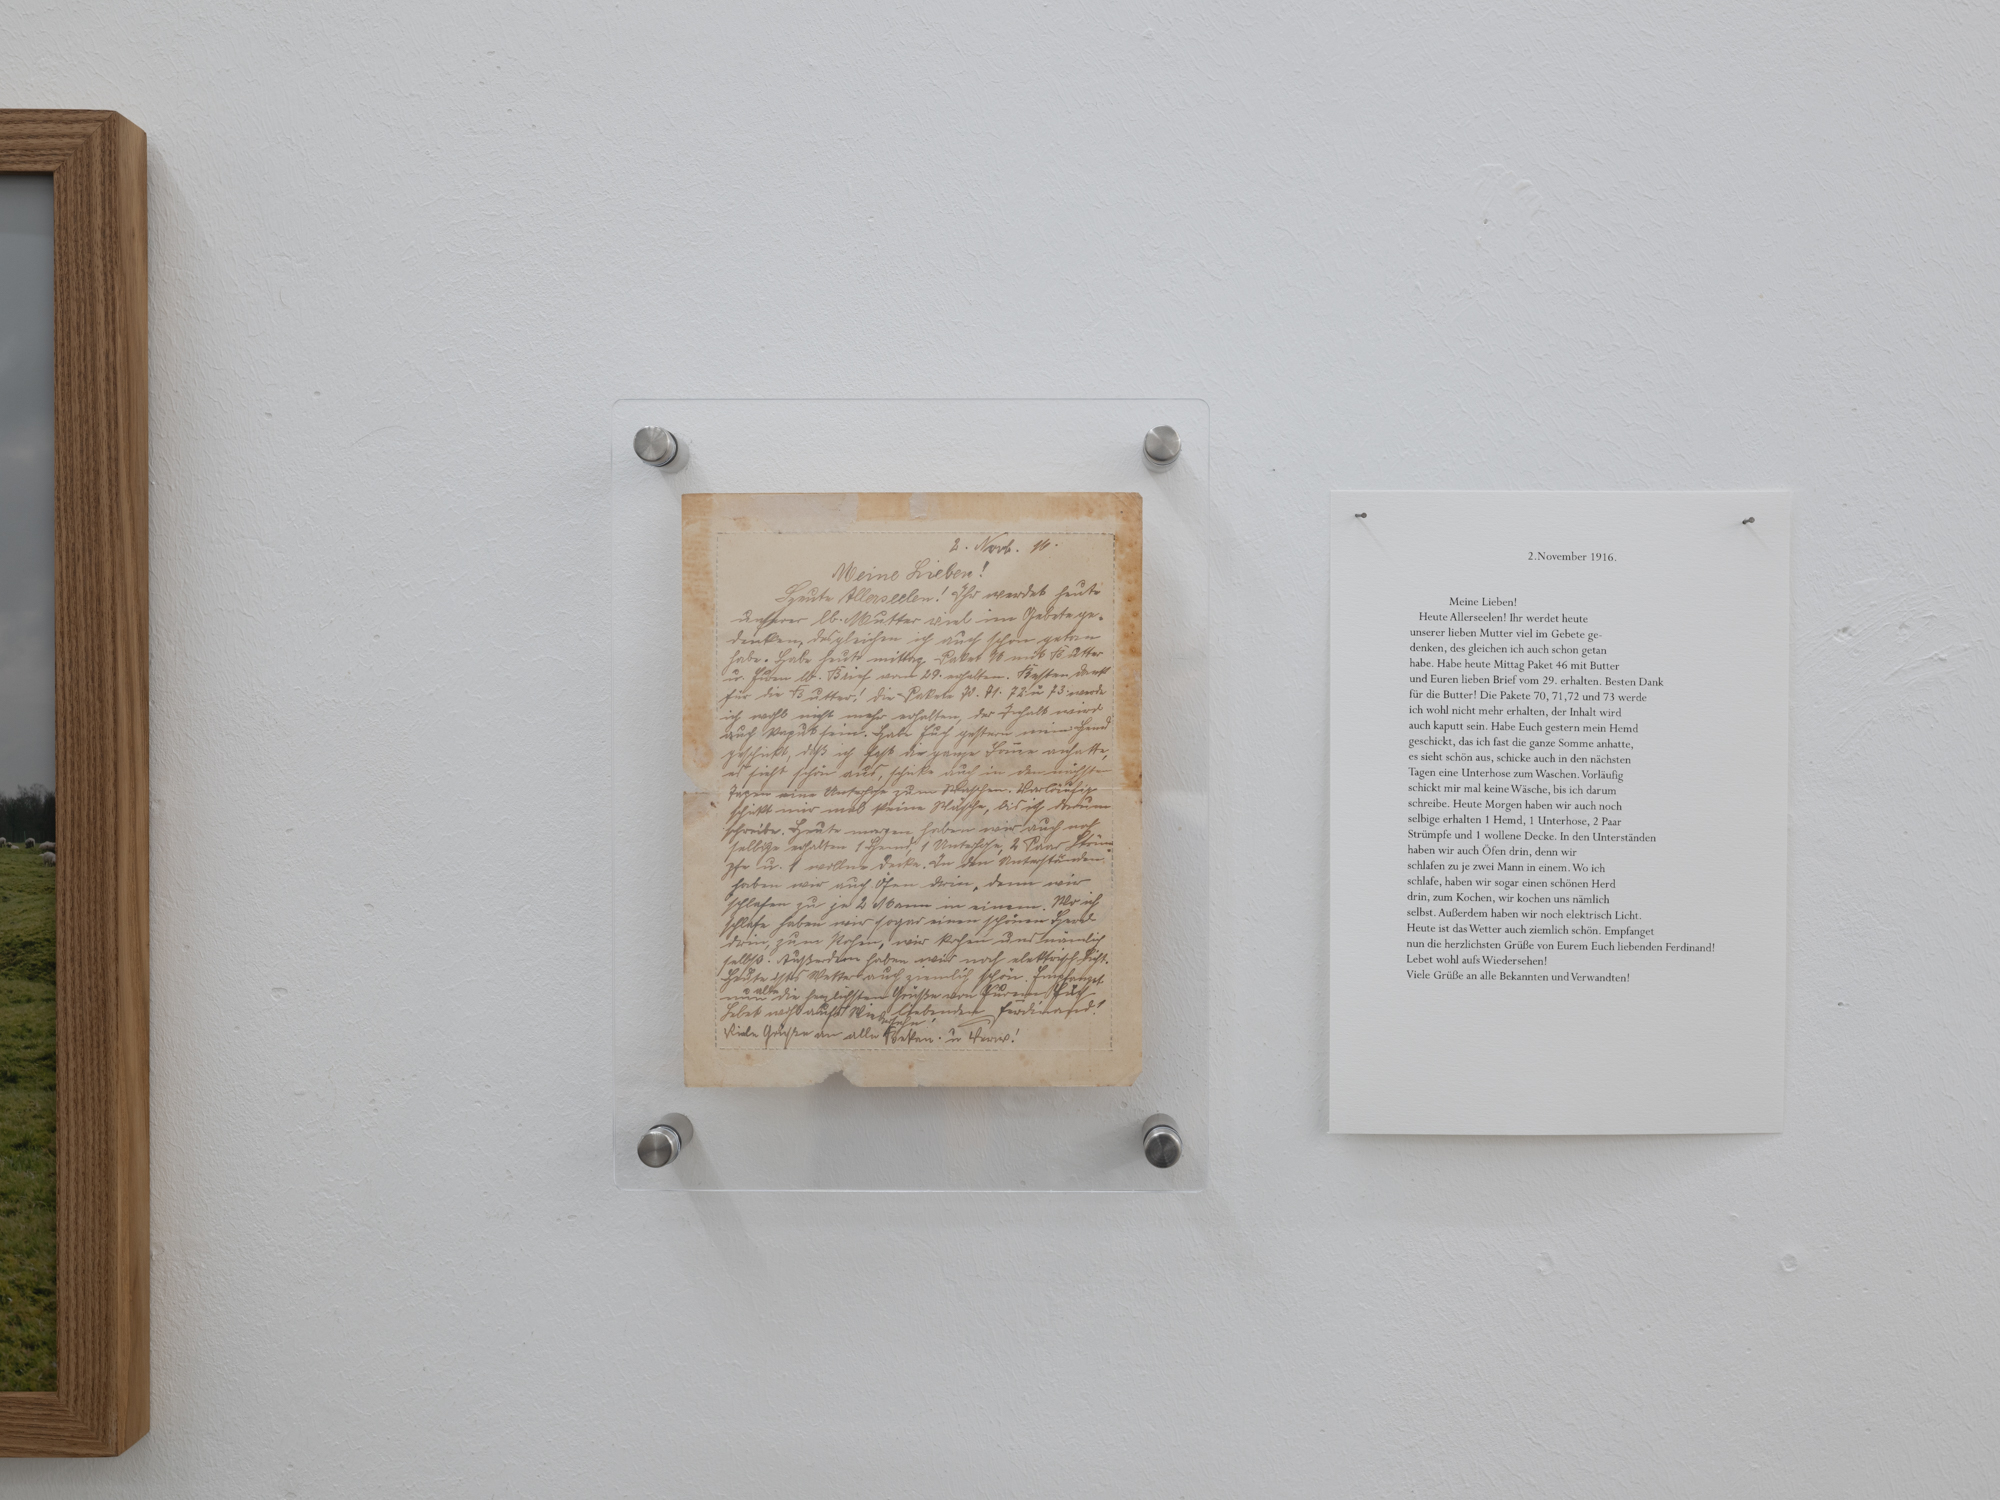 2. Novb. 16.
Meine Lieben!
Heute Allerseelen! Ihr werdet heute
unserer lb. Mutter viel im Gebete ge-
denken, desgleichen ich auch schon getan
habe. Habe heute mittag Paket 46 mit Butter
u. Euren lb. Brief vom 29. erhalten. Besten Dank
für die Butter! Die Pakete 70. 71. 72 u 73 werde
ich wohl nicht mehr erhalten, der Inhalt wird
auch kaput sein. Habe Euch gestern mein Hemd
geschickt, daß ich fast die ganze Somme anhatte,
es sieht schön aus, schicke auch in den nächsten
Tagen eine Unterhose zum Waschen. Vorläufig
schickt mir mal keine Wäsche, bis ich darum
schreibe. Heute morgen haben wir auch noch
selbige erhalten 1 Hemd, 1 Unterhose, 2 Paar Strüm-
pfe u. 1 wollne Decke. In den Unterständen
haben wir auch Öfen drin, denn wir
schlafen zu je 2 Mann in einem. Wo ich
schlafe haben wir sogar einen schönen Herd
drin, zum Kochen, wir kochen uns nämlich
selbst. Außerdem haben wir noch elektrisch Licht.
Heute ist das Wetter auch ziemlich schön. Empfanget
nun alle die herzlichsten Grüße von Eurem Euch
Lebet wohl aufs Wiedersehn! liebenden Ferdinand!
Viele Grüße an alle Bekan. u Verw!
2.November 1916.
Meine Lieben!
Heute Allerseelen! Ihr werdet heute
unserer lieben Mutter viel im Gebete ge-
denken, des gleichen ich auch schon getan
habe. Habe heute Mittag Paket 46 mit Butter
und Euren lieben Brief vom 29. erhalten. Besten Dank
für die Butter! Die Pakete 70, 71,72 und 73 werde
ich wohl nicht mehr erhalten, der Inhalt wird
auch kaputt sein. Habe Euch gestern mein Hemd
geschickt, das ich fast die ganze Somme anhatte,
es sieht schön aus, schicke auch in den nächsten
Tagen eine Unterhose zum Waschen. Vorläufig
schickt mir mal keine Wäsche, bis ich darum
schreibe. Heute Morgen haben wir auch noch
selbige erhalten 1 Hemd, 1 Unterhose, 2 Paar
Strümpfe und 1 wollene Decke. In den Unterständen
haben wir auch Öfen drin, denn wir
schlafen zu je zwei Mann in einem. Wo ich
schlafe, haben wir sogar einen schönen Herd
drin, zum Kochen, wir kochen uns nämlich
selbst. Außerdem haben wir noch elektrisch Licht.
Heute ist das Wetter auch ziemlich schön. Empfanget
nun die herzlichsten Grüße von Eurem Euch liebenden Ferdinand!
Lebet wohl aufs Wiedersehen!
Viele Grüße an alle Bekannten und Verwandten!